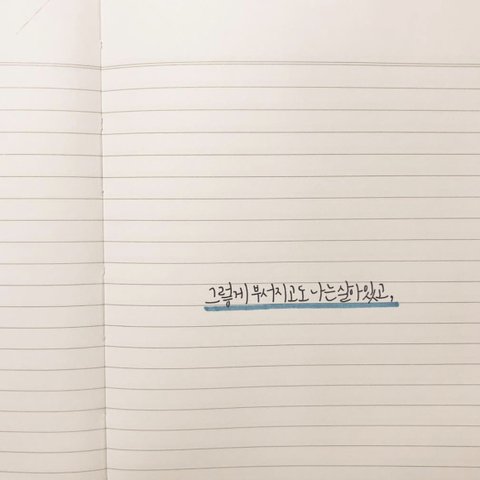 그렇게 부서지고도 나는 살아있고,